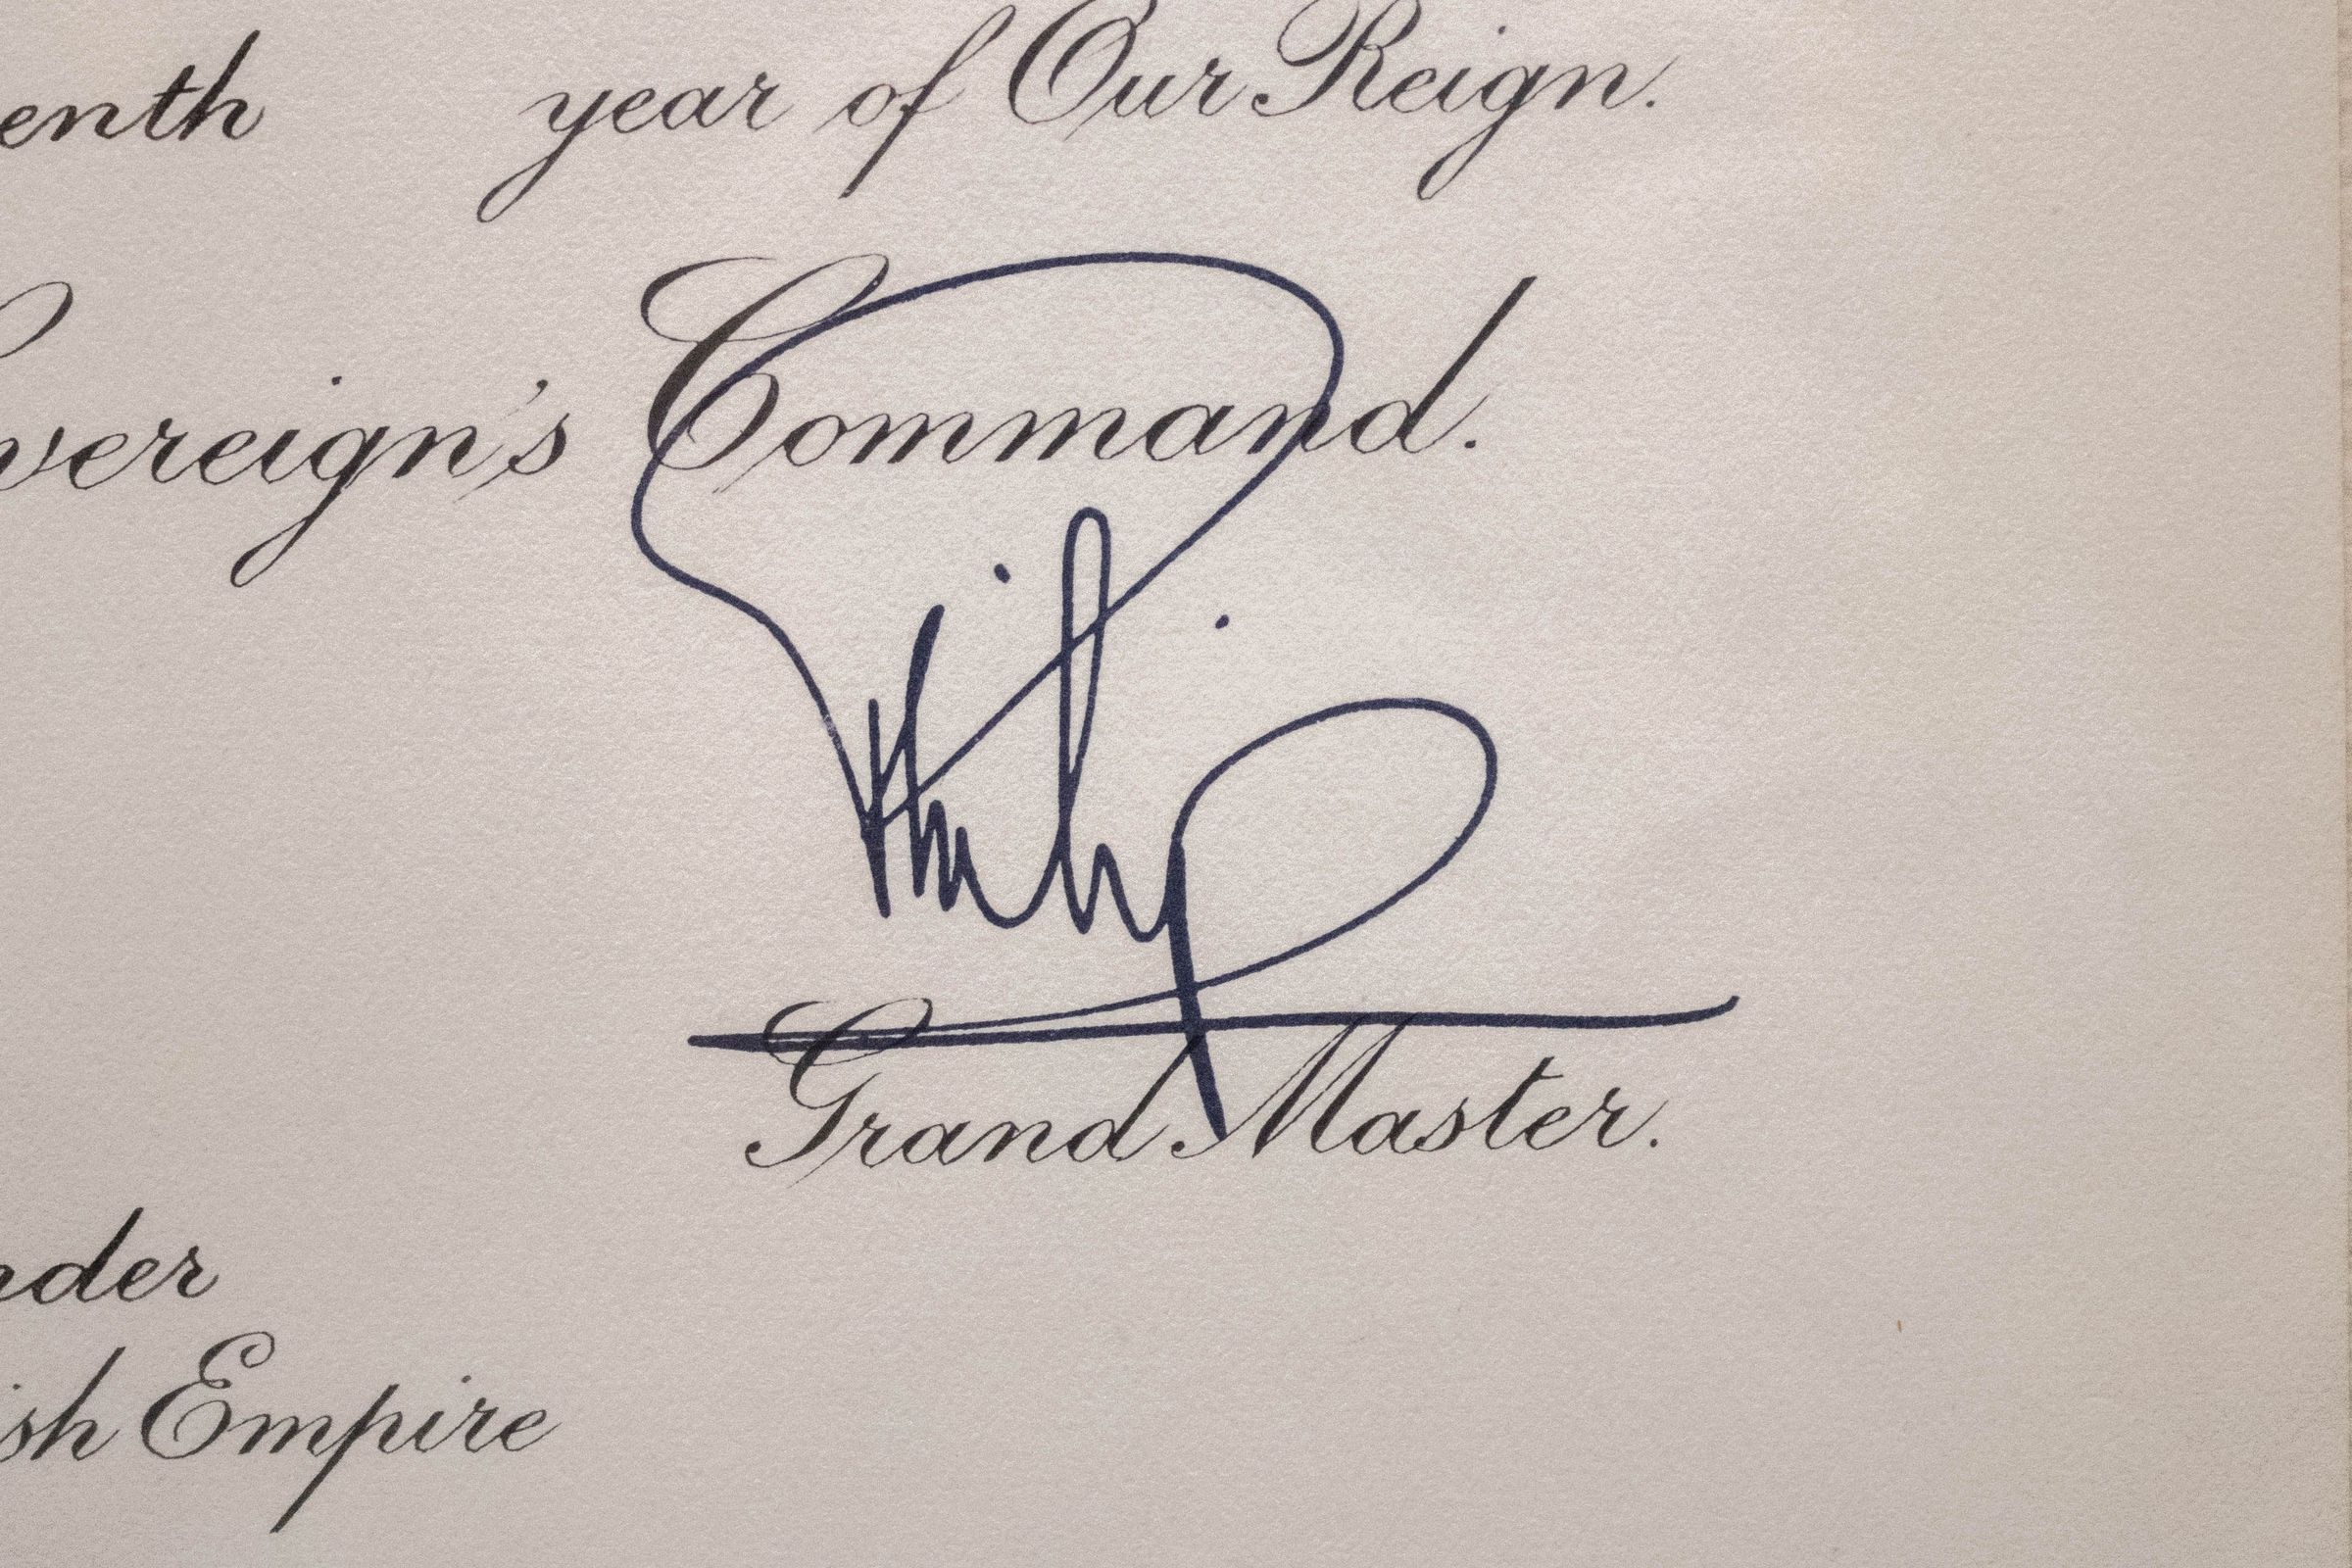 enth year of Our Reign.
vereign's Command.
Philip
Grand Master.
nder
ish Empire